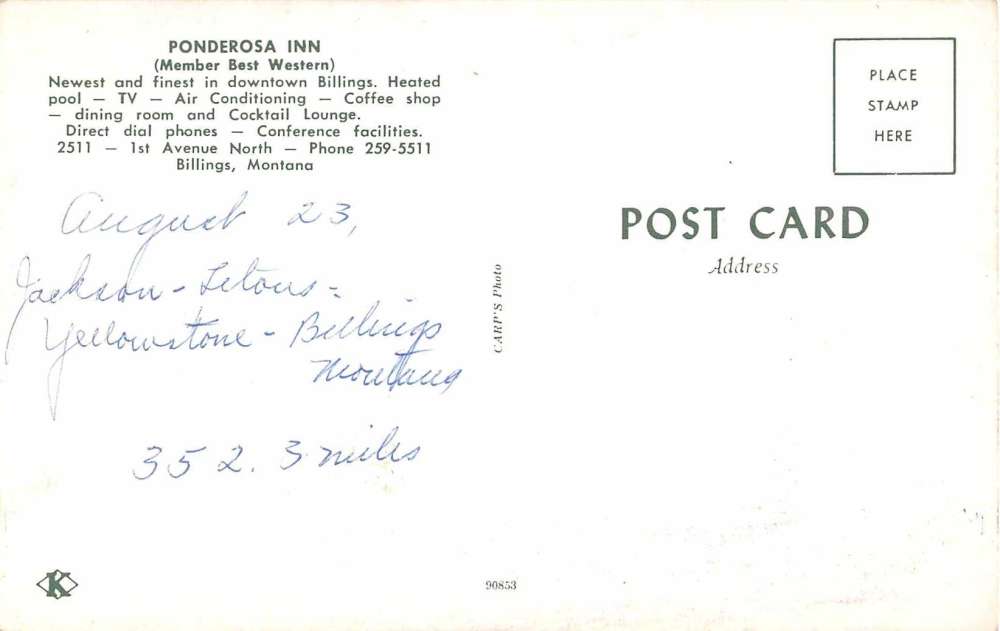 PONDEROSA INN
(Member Best Western)
Newest and finest in downtown Billings. Heated
pool — TV — Air Conditioning — Coffee shop
— dining room and Cocktail Lounge.
Direct dial phones — Conference facilities.
2511 — 1st Avenue North — Phone 259-5511
Billings, Montana
PLACE
STAMP
HERE
August 23,
Jackson - Tetons -
Yellowstone - Billings
Montana
352.3 miles
POST CARD
Address
CARP'S Photo
K
90853